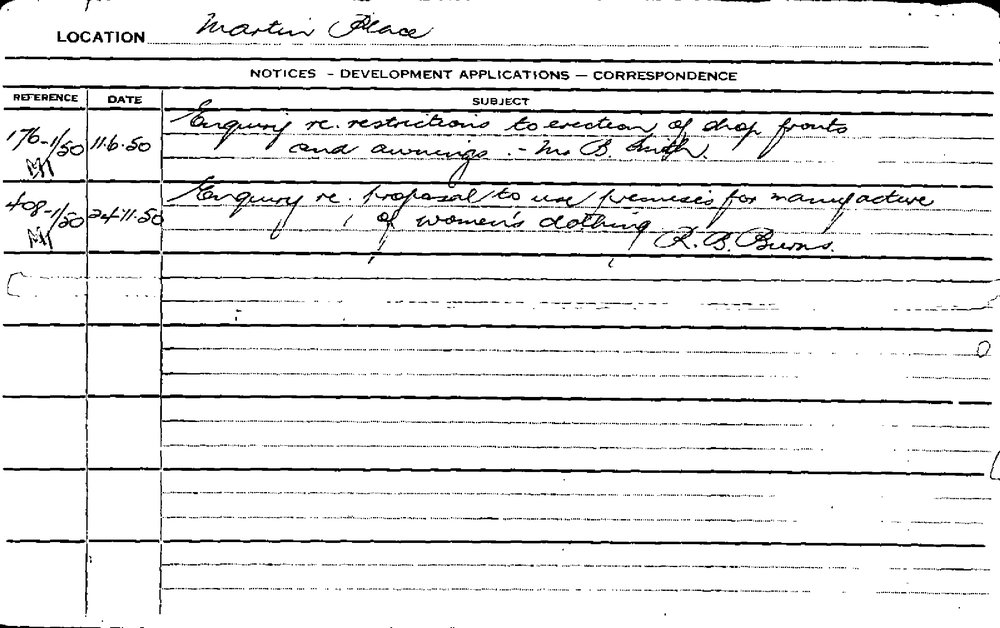 LOCATION Martin Place
NOTICES - DEVELOPMENT APPLICATIONS — CORRESPONDENCE
REFERENCE DATE SUBJECT
176-1/50 11.6.50 Enquiry re. restrictions to erection of drop fronts
and awnings. - Mr B. Smith.
408-1/50 24.11.50 Enquiry re. proposal to use premises for manufacture
of women's clothing R. B. Burns.